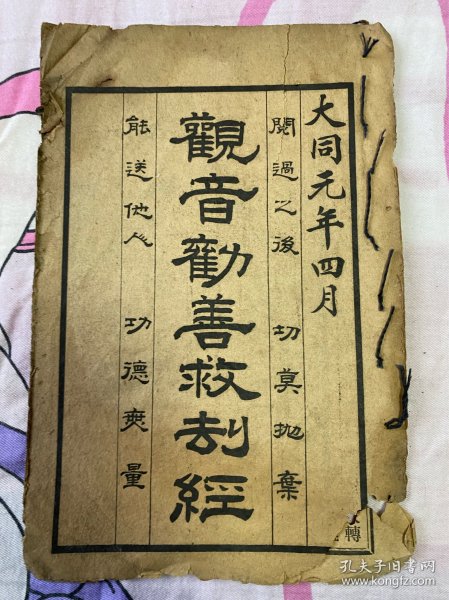 大同元年四月
閱過之後 切莫抛棄
觀音勸善救刦經
能送他人 功德無量
轉
孔夫子旧书网
www.kongfz.com